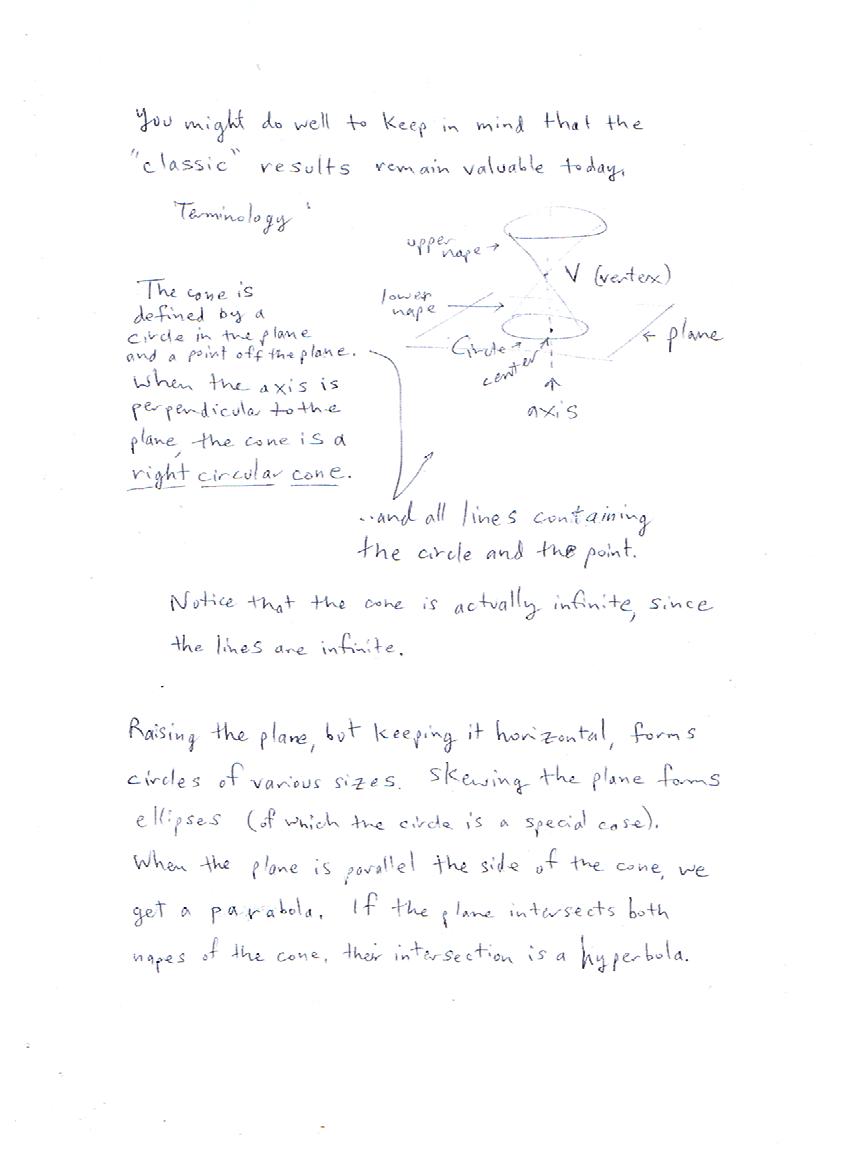 You might do well to keep in mind that the
"classic" results remain valuable today.
Terminology:
upper
nape →
V (vertex)
The cone is
defined by a
circle in the plane
and a point off the plane.
lower
nape →
← plane
Circle →
center
axis
When the axis is
perpendicular to the
plane, the cone is a
right circular cone.
...and all lines containing
the circle and the point.
Notice that the cone is actually infinite, since
the lines are infinite.
Raising the plane, but keeping it horizontal, forms
circles of various sizes. Skewing the plane forms
ellipses (of which the circle is a special case).
When the plane is parallel the side of the cone, we
get a parabola. If the plane intersects both
napes of the cone, their intersection is a hyperbola.